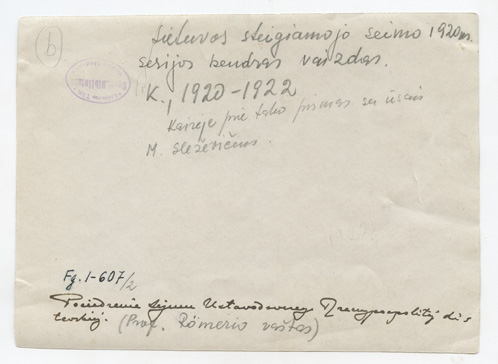 b
Lietuvos steigiamojo seimo 1920 m.
sesijos bendras vaizdas.
K., 1920-1922
Kairėje prie stalo pirmas su ūsais
M. Sleževičius.
Fg. 1-607/2
Posiedzenie Sejmu Ustawodawczego Rzeczypospolitej Li-
tewskiej. (Prof. Römerio raštas)